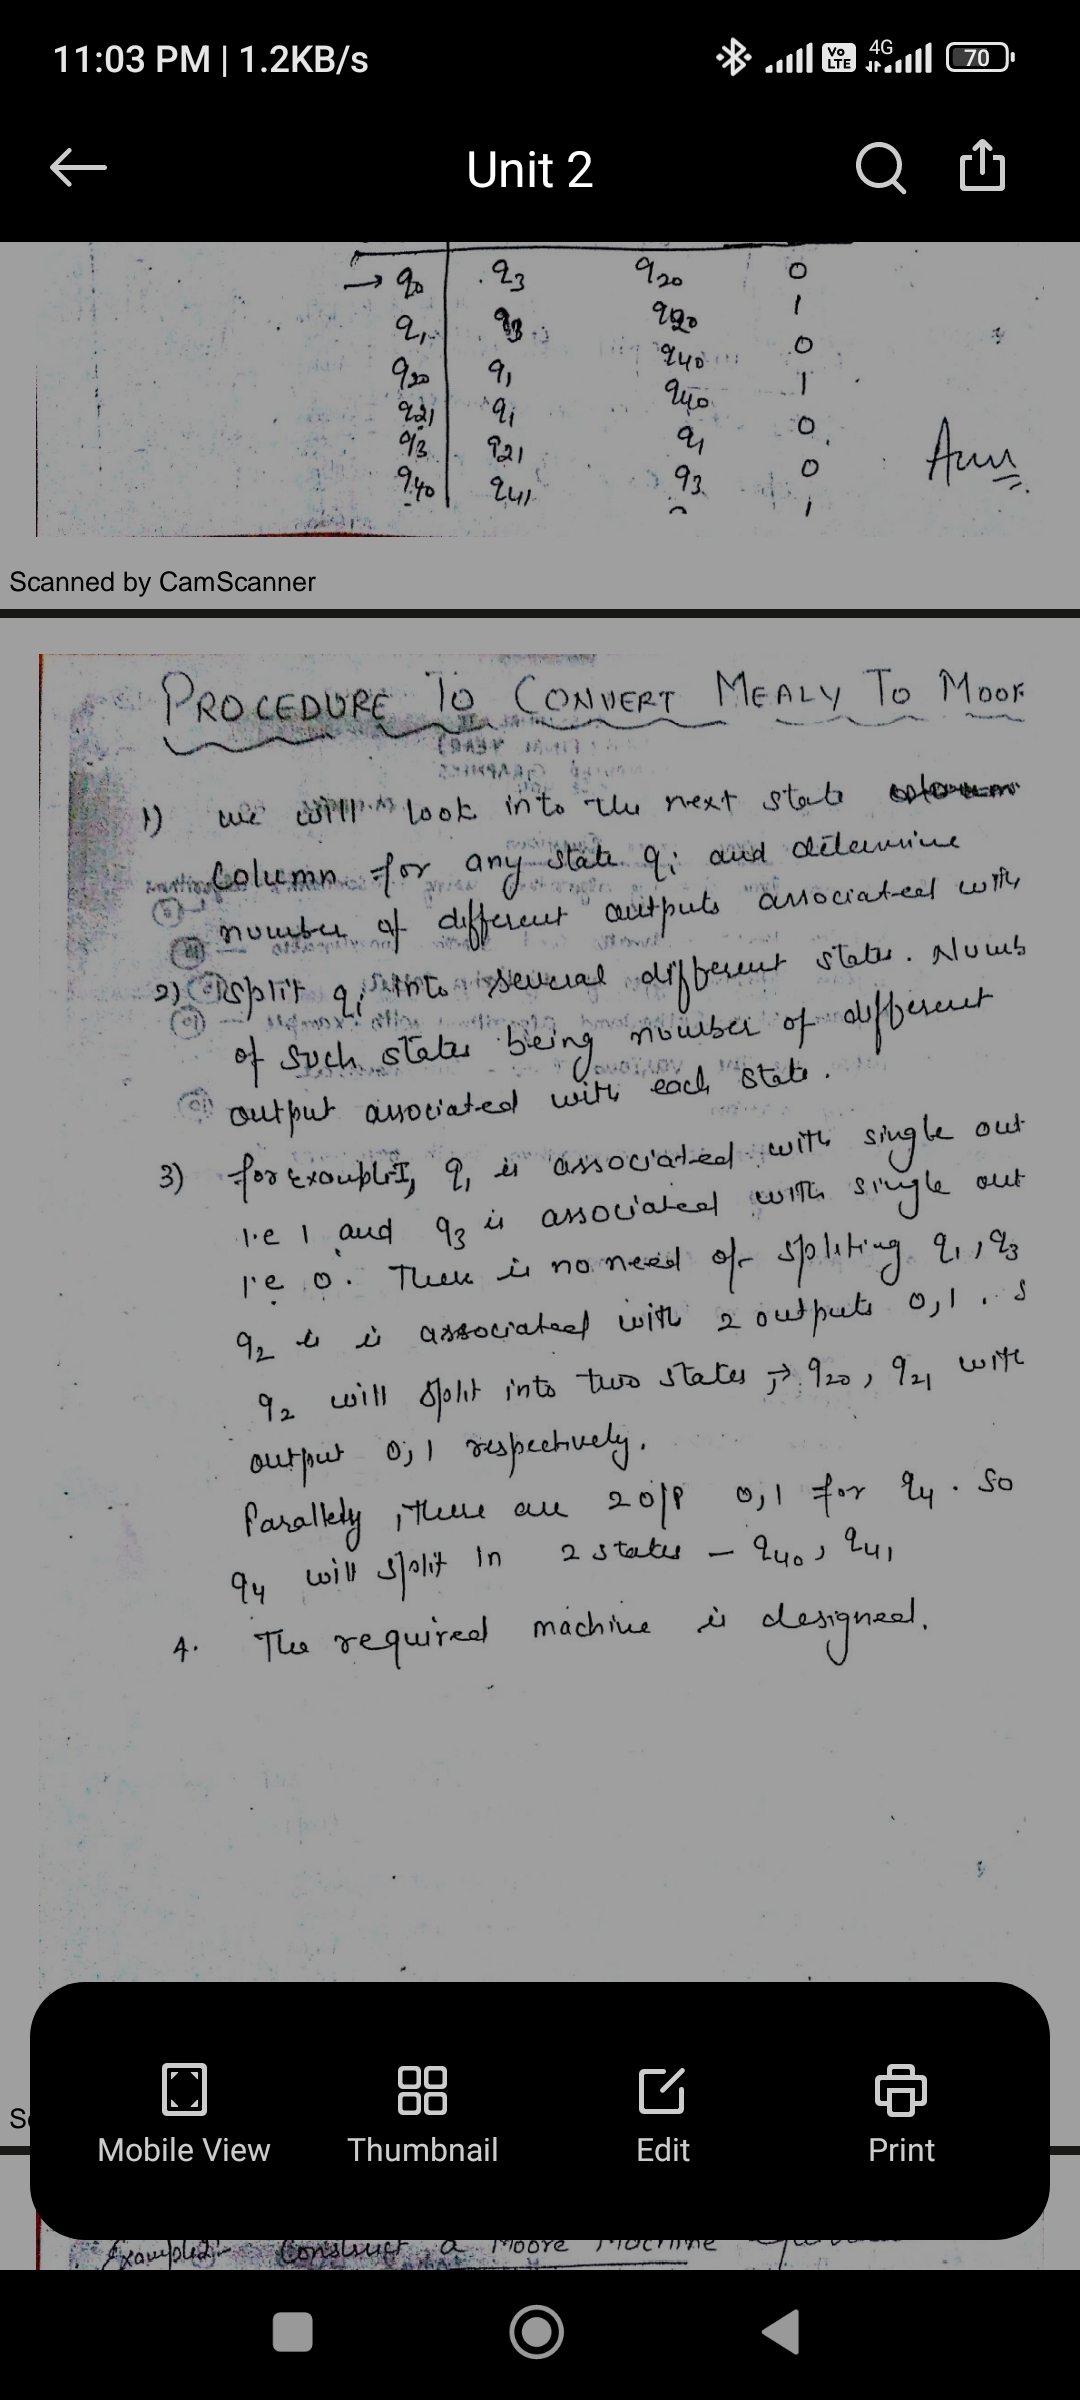 11:03 PM | 1.2KB/s Vo LTE 4G 70
Unit 2
→ q0 q3 q20 0
q1 q3 1
q20 q1 q40 0
q21 q1 q40 1
q3 q21 q1 0
q40 q41 q3 0
1
Scanned by CamScanner
PROCEDURE TO CONVERT MEALY TO MOOR
1) we will look into the next state
Column for any state qi and determine
number of different outputs associated with
2) split qi into several different states. Numb
of such states being number of different
output associated with each state.
3) for example I, q1 is associated with single out
i.e 1 and q3 is associated with single out
i.e 0. There is no need of spliting q1, q3
q2 is is associated with 2 outputs 0,1. S
q2 will split into two states → q20, q21 with
output 0,1 respectively.
Parallely, there are 2 O/P 0,1 for q4. So
q4 will split In 2 states – q40, q41
4. The required machine is designed.
S
Mobile View Thumbnail Edit Print
Example2:- Construct a Moore Machine